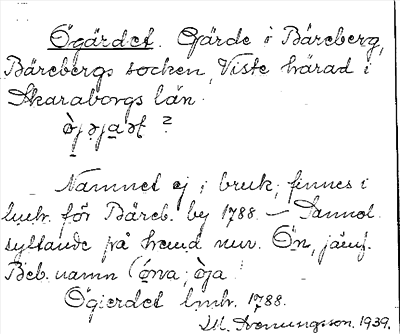 Ögärdet. Gärde i Bäreberg,
Bärebergs socken, Viste härad i
Skaraborgs län.
?
Namnet ej i bruk; finnes i
lmhr. för Bäreb. by 1788. — Sannol.
syftande på hemd nmr. Ön, jämf.
Beb. namn
Ögierdet lmhr. 1788.
M. Hemmingsson. 1939.